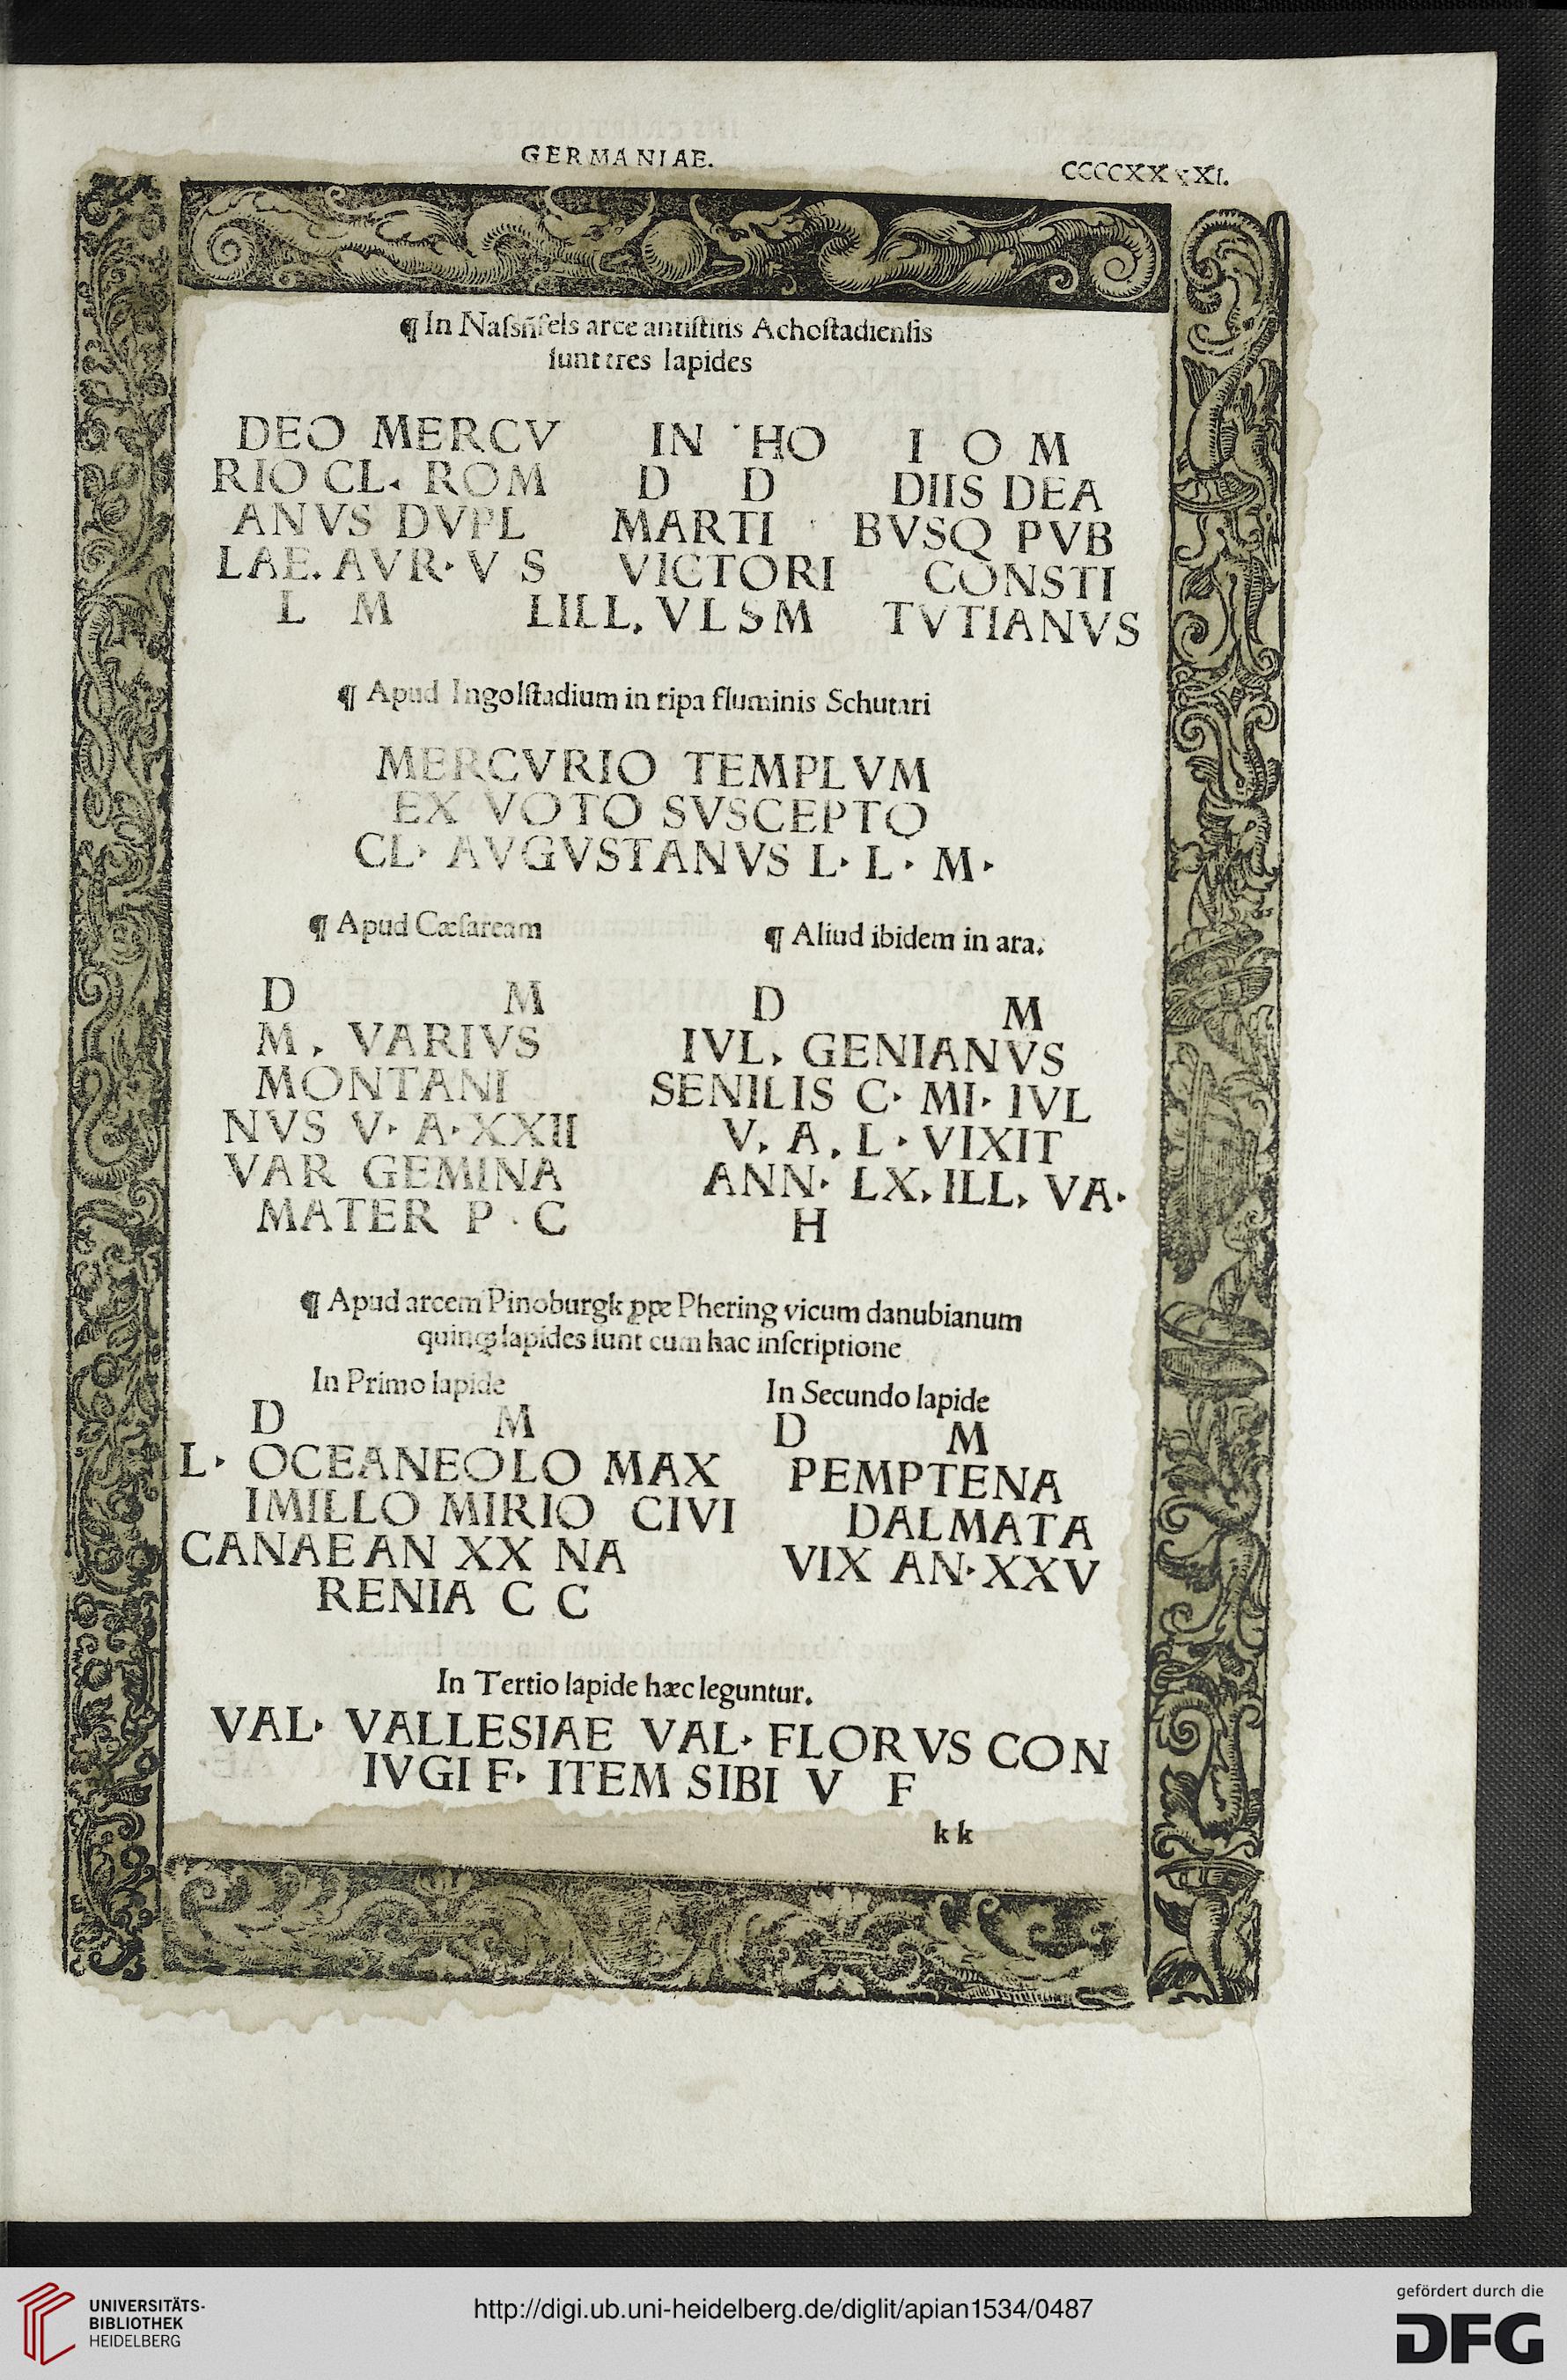 GERMANIAE.
CCCCXXXXI.
¶ In Nassñfels arce antistitis Achostadiensis
sunt tres lapides
DEO MERCV
RIO CL. ROM
ANVS DVPL
LAE. AVR· V S
L M
IN HO
D D
MARTI
VICTORI
LILL, VLSM
I O M
DIIS DEA
BVSQ PVB
CONSTI
TVTIANVS
¶ Apud Ingolstadium in ripa fluminis Schutari
MERCVRIO TEMPLVM
EX VOTO SVSCEPTO
CL· AVGVSTANVS L· L· M·
¶ Apud Cæsaream
D M
M, VARIVS
MONTANI
NVS V· A· XXII
VAR GEMINA
MATER P · C
¶ Aliud ibidem in ara.
D M
IVL, GENIANVS
SENILIS C· MI· IVL
V, A, L· VIXIT
ANN· LX, ILL, VA·
H
¶ Apud arcem Pinoburgk ꝓpe Phering vicum danubianum
quinqꝫ lapides sunt cum hac inscriptione
In Primo lapide
D M
L· OCEANEOLO MAX
IMILLO MIRIO CIVI
CANAE AN XX NA
RENIA C C
In Secundo lapide
D M
PEMPTENA
DALMATA
VIX AN· XXV
In Tertio lapide hæc leguntur.
VAL· VALLESIAE VAL· FLORVS CON
IVGI F· ITEM SIBI V F
kk
UNIVERSITÄTS-
BIBLIOTHEK
HEIDELBERG
http://digi.ub.uni-heidelberg.de/diglit/apian1534/0487
gefördert durch die
DFG